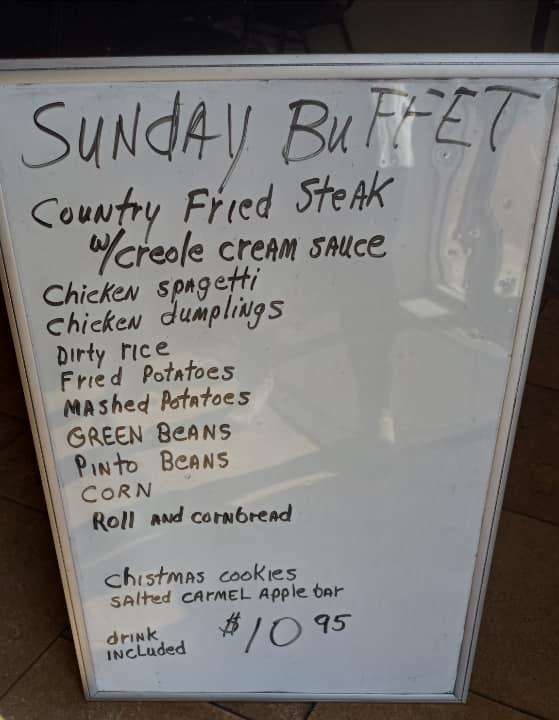 SUNdAy BuFFET
Country Fried SteAK
w/creole creAM SAUce
Chicken spAgetti
Chicken dumplings
Dirty rice
Fried PotAtoes
MAshed PotAtoes
GREEN BeANS
PiNto BeANS
CORN
Roll ANd corNbreAd
ChistmAs cookies
SAlted CArmel Apple bAr
driNK
INcluded
$10 95